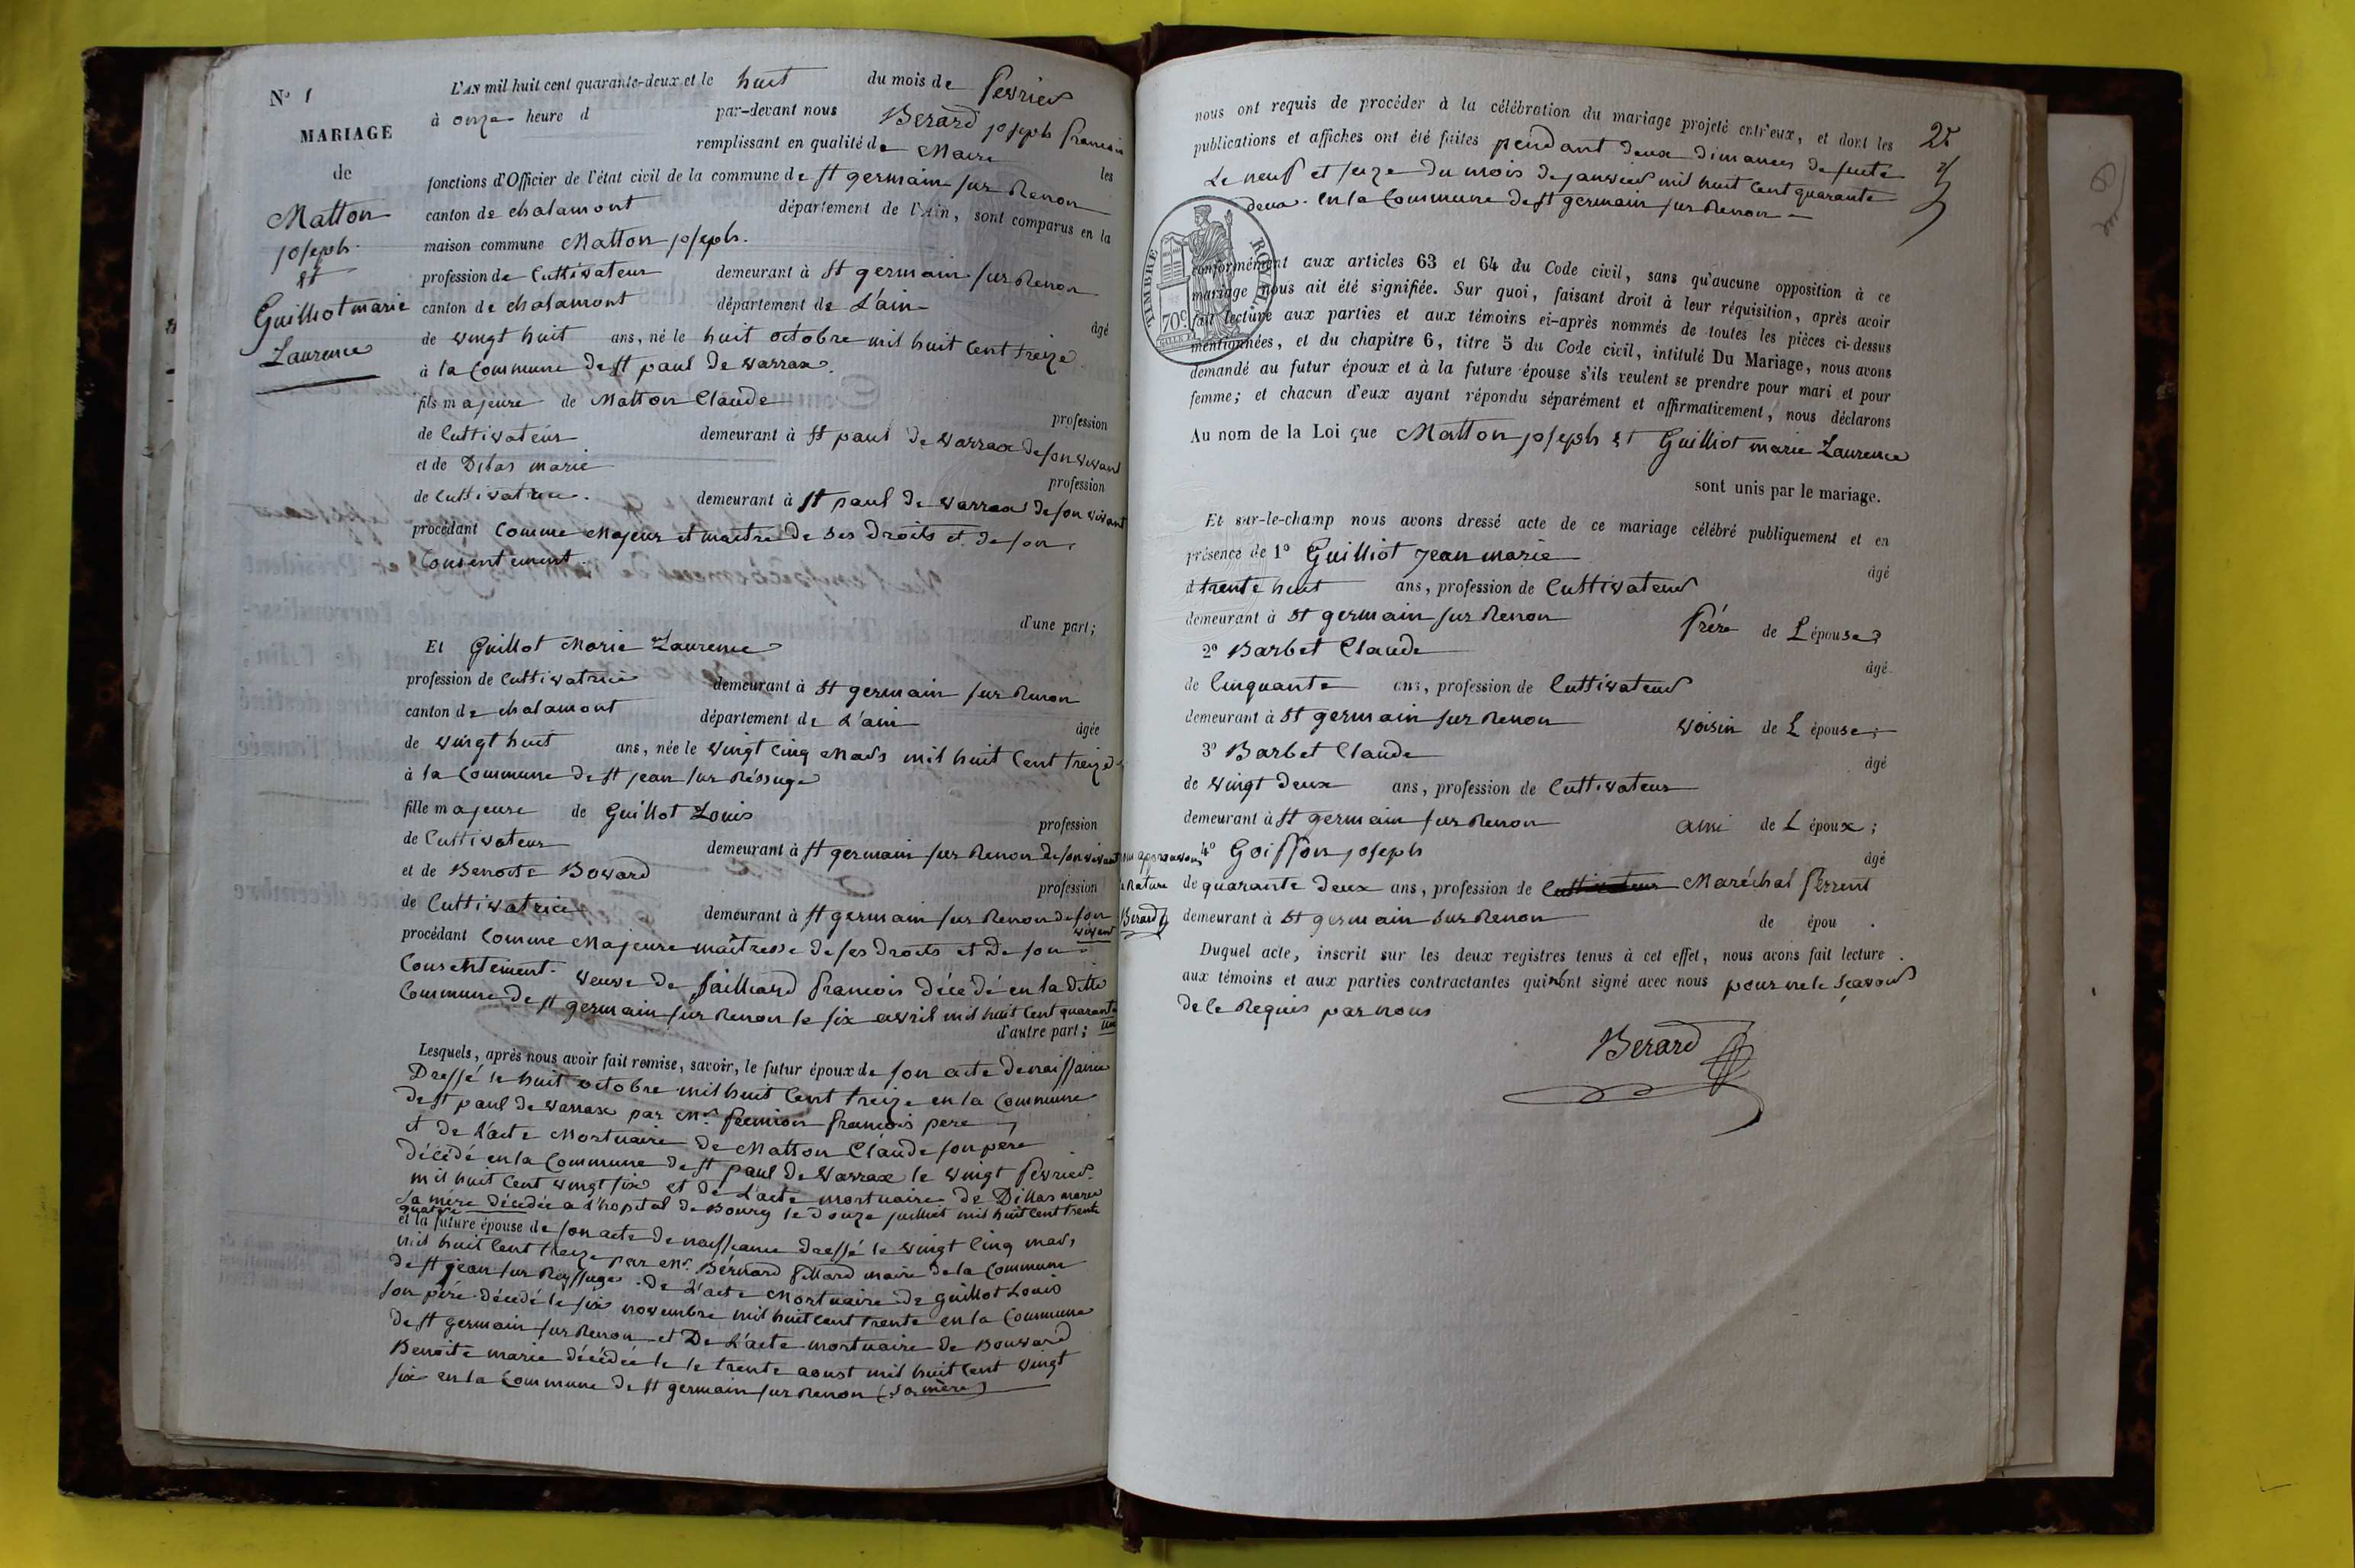 N° 1
MARIAGE
de
Matton
joseph
Et
Guilliot marie
Laurence
L'AN mil huit cent quarante-deux et le huit du mois de fevrier
à onze heure d par-devant nous Berard joseph francois
remplissant en qualité de Maire les
fonctions d'Officier de l'état civil de la commune de st germain sur Renon
canton de chalamont département de l'Ain, sont comparus en la
maison commune Matton joseph.
profession de Cultivateur demeurant à St germain sur Renon
canton de chalamont département de L'ain
âgé
de vingt huit ans, né le huit octobre mil huit Cent treize
à la Commune de st paul de varrax.
fils majeure de Matton Claude
profession
de Cultivateur demeurant à st paul de varrax de son vivant
et de Dilas marie
profession
de Cultivatrice. demeurant à st paul de varrax de son vivant
procédant Comme Majeur et maitre de ses droits et de son
Consentement.
d'une part;
Et Guillot Marie Laurence
profession de Cultivatrice demeurant à St germain sur Renon
canton de chalamont département de L'ain
âgée
de vingt huit ans, née le vingt Cinq Mars mil huit Cent treize
à la Commune de st jean sur Réssuge
fille majeure de Guillot Louis
profession
de Cultivateur demeurant à st germain sur Renon de son vivant
et de Benoite Bovard
profession
de Cultivatrice demeurant à st germain sur Renon de son
vivant
procédant Comme Majeure maîtresse de ses droits et De son
Consentement. veuve de failliard francois décédé en la ditte
Commune de st germain sur Renon le six avril mil huit Cent quarante
d'autre part; un
Lesquels, après nous avoir fait remise, savoir, le futur époux de son acte de naissance
Dressé le huit octobre mil huit Cent treize en la Commune
de st paul de varrax par Mr. francois pere
et de L'acte Mortuaire de Matton Claude son père
décédé en la Commune de st paul de Varrax le vingt fevrier
mil huit Cent vingt six et de L'acte mortuaire de Dillas marie
sa mère décédée a L'hopital de Bourg le douze juilliet mil huit Cent trente
quatre
et la future épouse de son acte de naissance dressé le vingt Cinq mars
mil huit Cent treize par Mr. Bérnard maire de la Commune
de st jean sur Reyssuge. de L'acte Mortuaire de guillot Louis
son père décédé le six novembre mil huit cent trente en la Commune
de st germain sur Renon et De L'acte mortuaire de Bouvard
Benoite marie décédée le le trente aoust mil huit Cent vingt
six en la Commune de st germain sur Renon (sa mère)
2
nous ont requis de procéder à la célébration du mariage projeté entr'eux, et dont les
publications et affiches ont été faites pendant deux dimances de suite
Le neuf et seize du mois de janvier mil huit Cent quarante
deux. En la Commune de st germain sur Renon
TIMBRE ROYAL
70c
conformément aux articles 63 et 64 du Code civil, sans qu'aucune opposition à ce
mariage nous ait été signifiée. Sur quoi, faisant droit à leur réquisition, après avoir
fait lecture aux parties et aux témoins ci-après nommés de toutes les pièces ci-dessus
mentionnées, et du chapitre 6, titre 5 du Code civil, intitulé Du Mariage, nous avons
demandé au futur époux et à la future épouse s'ils veulent se prendre pour mari et pour
femme; et chacun d'eux ayant répondu séparément et affirmativement, nous déclarons
Au nom de la Loi que Matton joseph Et Guilliot marie Laurence
sont unis par le mariage.
Et sur-le-champ nous avons dressé acte de ce mariage célébré publiquement et en
présence de 1° Guilliot Jean marie
âgé
d trente huit ans, profession de Cultivateur
demeurant à St germain sur Renon frére de L épouse;
2° Barbet Claude
âgé
de Cinquante ans, profession de Cultivateur
demeurant à St germain sur Renon voisin de L épouse;
3° Barbet Claude
âgé
de vingt deux ans, profession de Cultivateur
demeurant à St germain sur Renon ami de L époux;
4° Goiffon joseph
âgé
de quarante deux ans, profession de Cultivateur Maréchal ferrent
demeurant à St germain sur Renon de épou .
Berard
Duquel acte, inscrit sur les deux registres tenus à cet effet, nous avons fait lecture
aux témoins et aux parties contractantes qui nont signé avec nous pour ne le sçavoir
de le Requis par nous
Berard